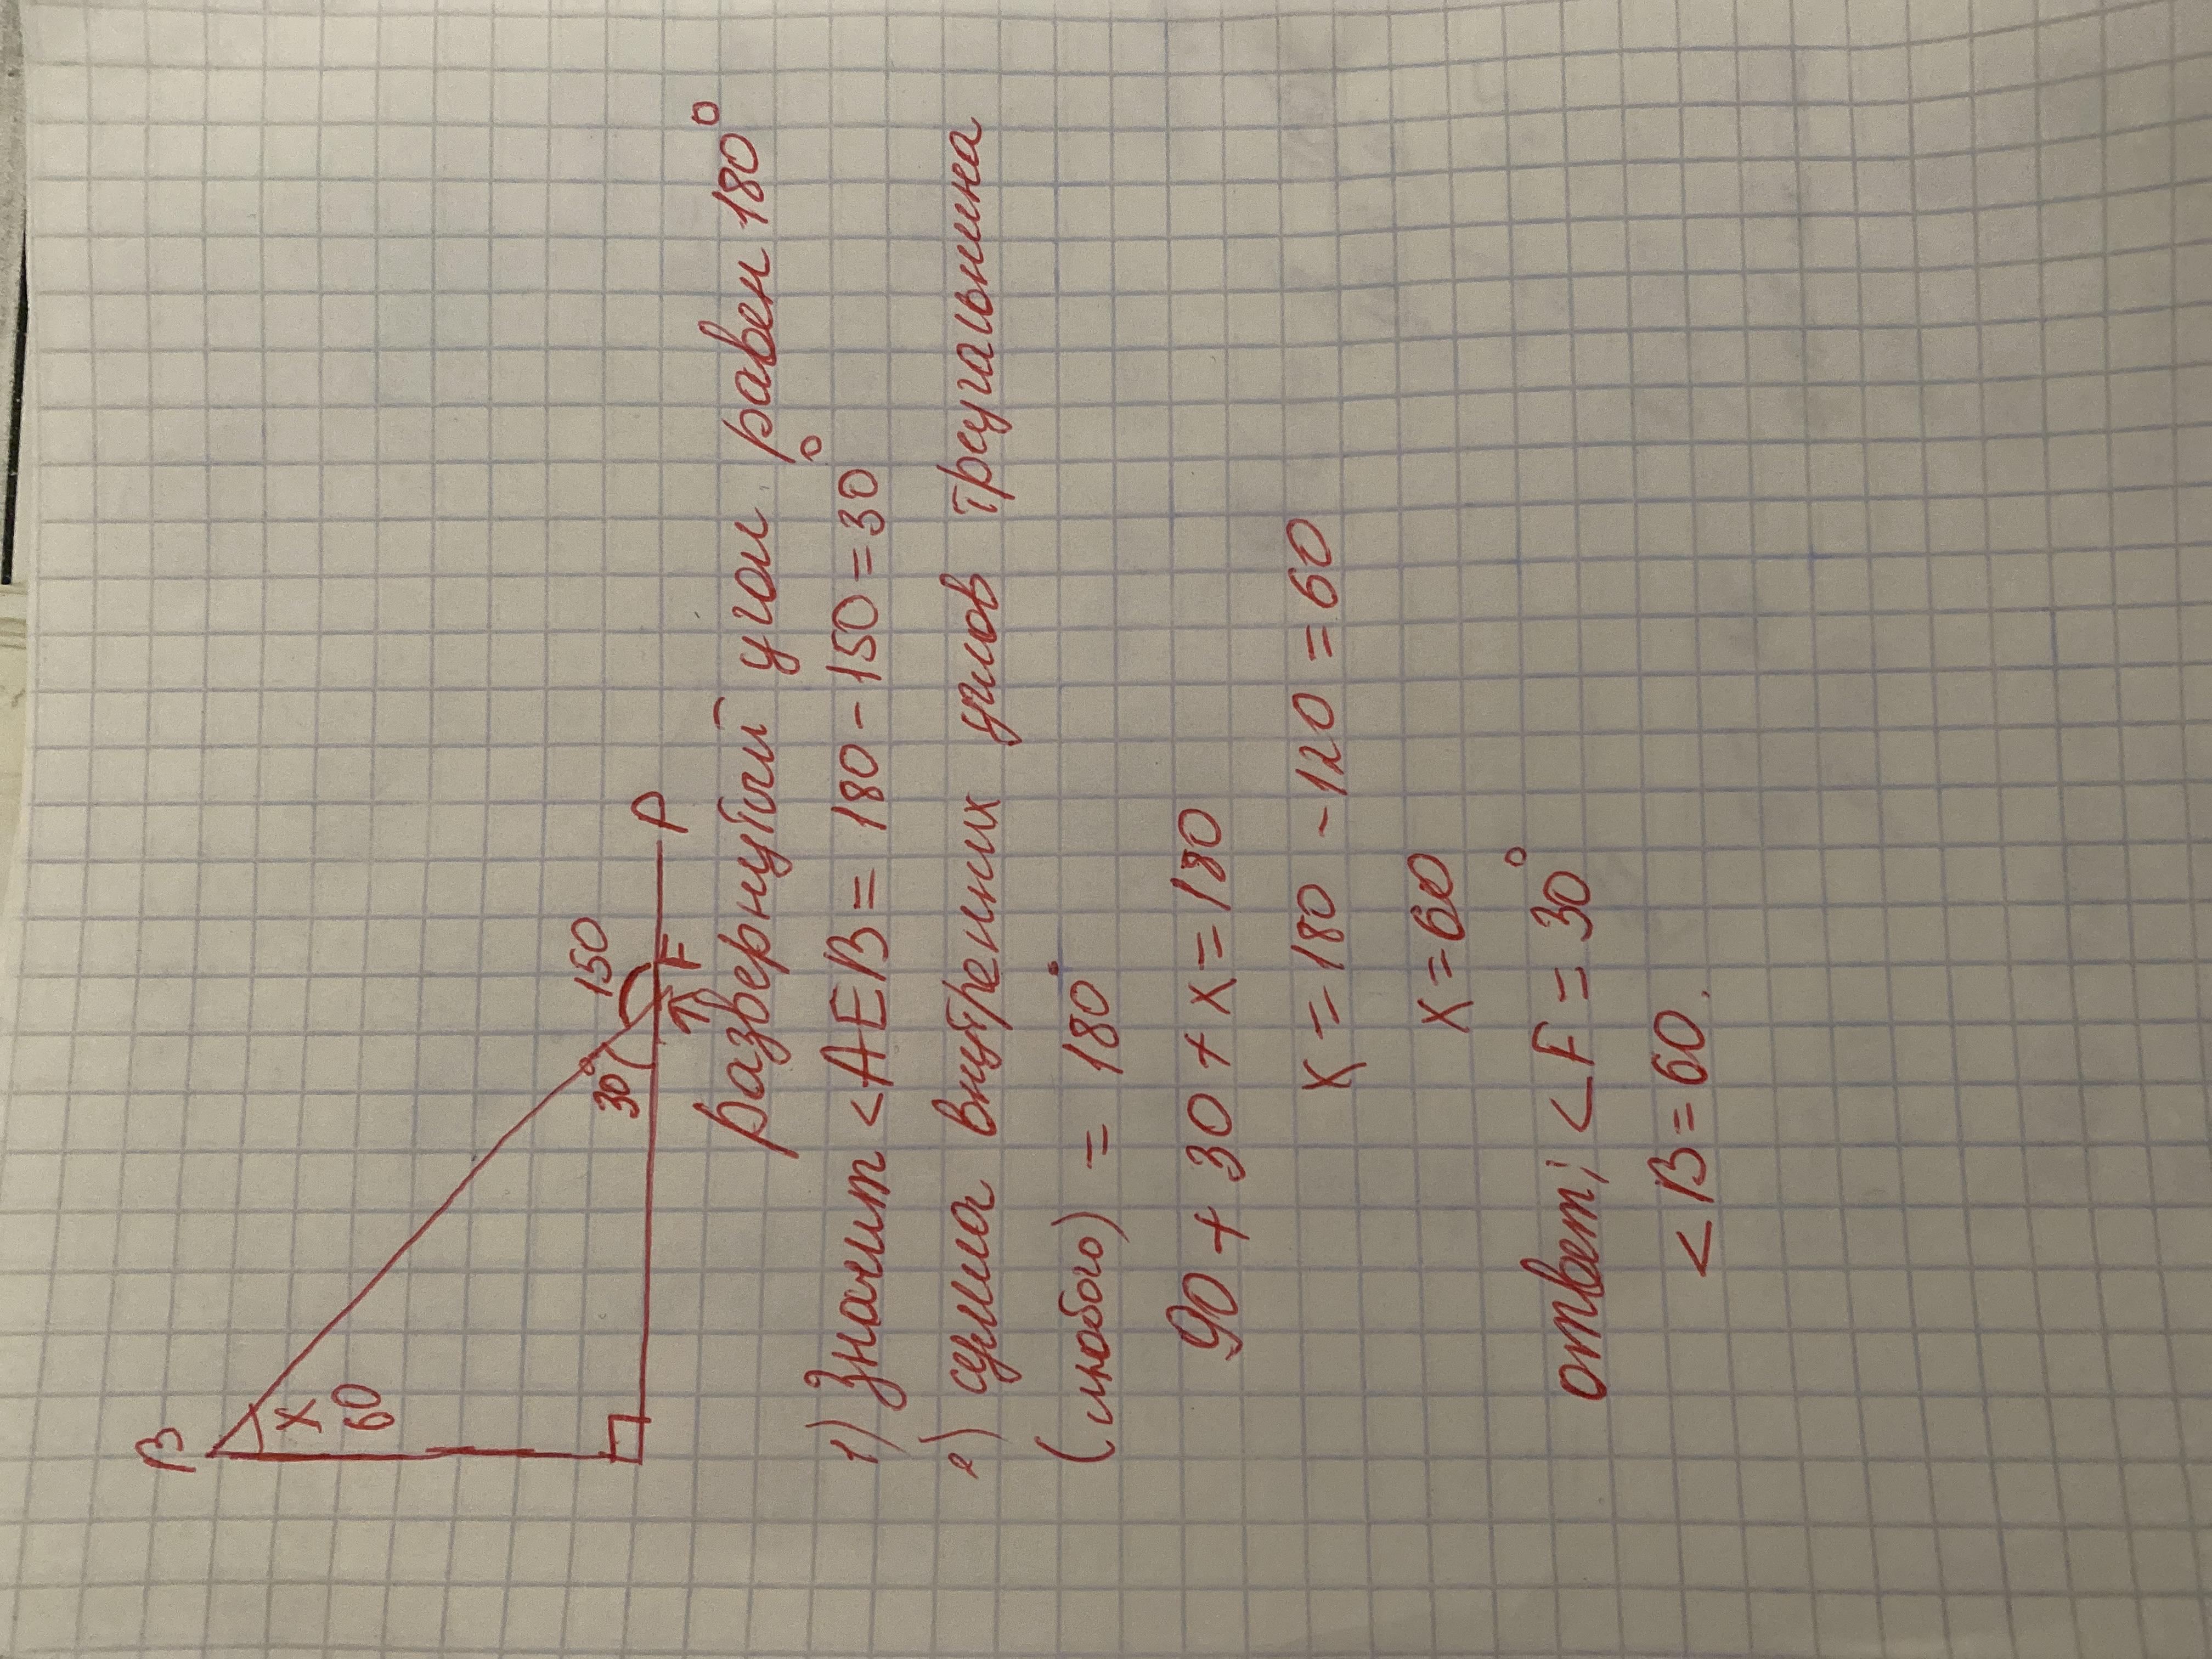 B
X
60
30°
150
F
P
развернутый угол равен 180°
1) Значит <AEB = 180-150=30°
2) сумма внутренних углов треугальника
(любого) = 180°
90 + 30 + X = 180
X = 180 - 120 = 60
X = 60
ответ; <F = 30°
<B = 60.